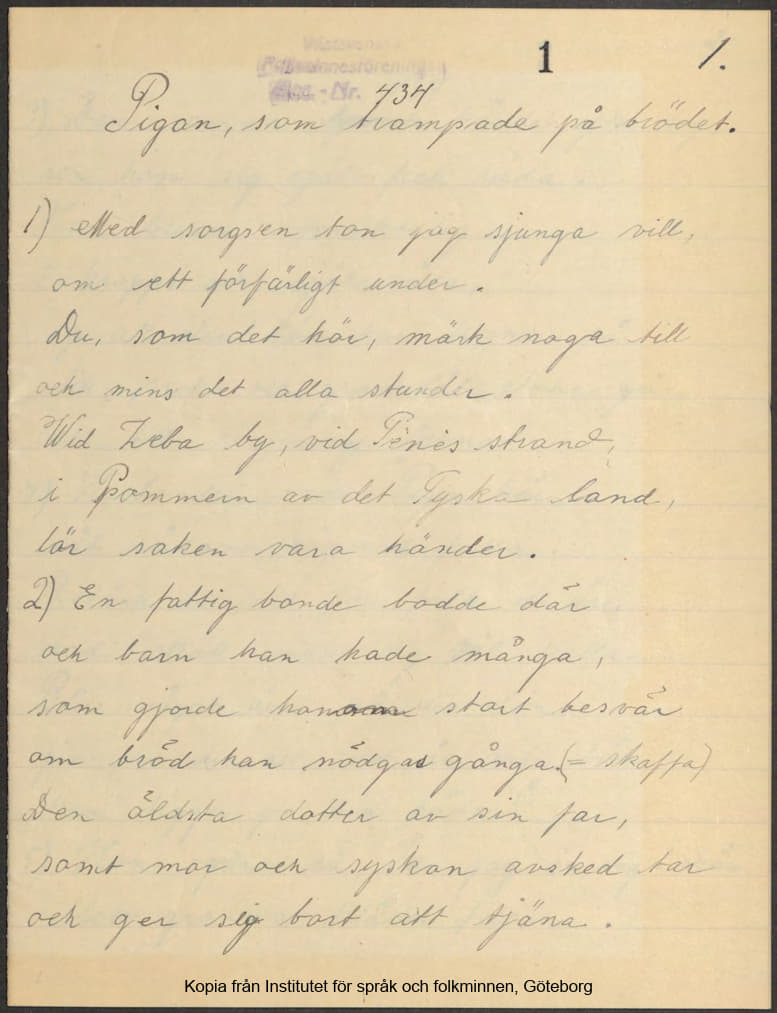 1 1.
Västsvenska
Folkminnesföreningen
Acc.-Nr. 434
Pigan, som trampade på brödet.
1) Med sorgsen ton jag sjunga vill,
om ett förfärligt under.
Du, som det hör, märk noga till
och mins det alla stunder.
Wid Zeba by, vid Penes strand,
i Pommern av det Tyska land,
lär saken vara händer.
2) En fattig bonde bodde där
och barn han hade många,
som gjorde honom stort besvär
om bröd han nödgas gånga. (= skaffa)
Den äldsta dotter av sin far,
samt mor och syskon avsked tar
och ger sig bort att tjäna.
Kopia från Institutet för språk och folkminnen, Göteborg